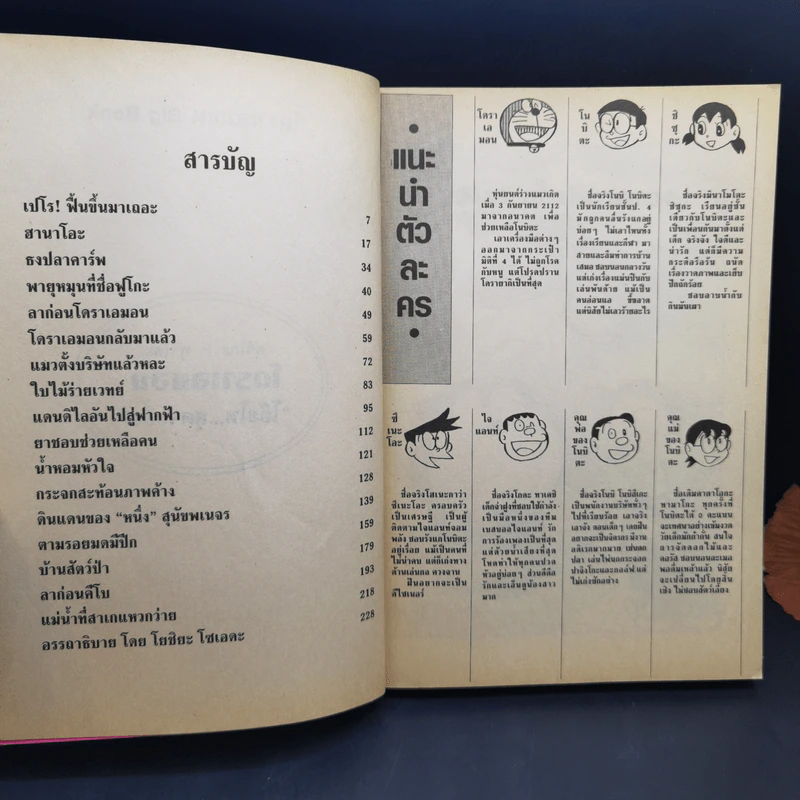 สารบัญ
เปโร! ฟื้นขึ้นมาเถอะ 7
ฮานาโอะ 17
ธงปลาคาร์พ 34
พายุหมุนที่ชื่อฟูโกะ 40
ลาก่อนโดราเอมอน 49
โดราเอมอนกลับมาแล้ว 59
แมวตั้งบริษัทแล้วหละ 72
ใบไม้ร่ายเวทย์ 83
แดนดิไลอันไปสู่ฟากฟ้า 95
ยาชอบช่วยเหลือคน 112
น้ำหอมหัวใจ 121
กระจกสะท้อนภาพค้าง 128
ดินแดนของ “หนึ่ง” สุนัขพเนจร 139
ตามรอยมดมีปีก 159
บ้านสัตว์ป่า 179
ลาก่อนคีโบ 193
แม่น้ำที่สาเกแหวกว่าย 218
อรรถาธิบาย โดย โยชิยะ โซเอดะ 228
แนะนำตัวละคร
โดราเอมอน
หุ่นยนต์ร่างแมวเกิด
เมื่อ 3 กันยายน 2112
มาจากอนาคต เพื่อ
ช่วยเหลือโนบิตะ
เอาเครื่องมือต่างๆ
ออกมาจากกระเป๋า
มิติที่ 4 ได้ ไม่ถูกโรค
กับหนู แต่โปรดปราน
โดรายากิเป็นที่สุด
โนบิตะ
ชื่อจริงโนบิ โนบิตะ
เป็นนักเรียนชั้นป. 4
มักถูกคนอื่นรังแกอยู่
บ่อยๆ ไม่เอาไหนทั้ง
เรื่องเรียนและกีฬา มา
สายและลืมทำการบ้าน
เสมอ ชอบนอนกลางวัน
แต่เก่งเรื่องแม่นปืนกับ
เล่นพันด้าย แม้เป็น
คนอ่อนแอ ขี้ขลาด
แต่นิสัยไม่เลวร้ายอะไร
ชิซุกะ
ชื่อจริงมินาโมโตะ
ชิซุกะ เรียนอยู่ชั้น
เดียวกับโนบิตะและ
เป็นเพื่อนกันมาตั้งแต่
เด็ก จริงจัง ใจดีและ
น่ารัก แต่ก็มีความ
กระตือรือร้น ถนัด
เรื่องวาดภาพและเย็บ
ปักถักร้อย
ชอบอาบน้ำกับ
กินมันเผา
ซึเนะโอะ
ชื่อจริงโฮเนะกาว่า
ซึเนะโอะ ครอบครัว
เป็นเศรษฐี เป็นผู้
ติดตามใจแอนท์จอม
พลัง ชอบรังแกโนบิตะ
อยู่เรื่อย แม้เป็นคนที่
ไม่น่าคบ แต่ก็เก่งทาง
ด้านเล่นกล ดวงจาน
ฝันอยากจะเป็น
ดีไซเนอร์
ไจแอนท์
ชื่อจริงโกดะ ทาเคชิ
เด็กจ่าฝูงที่ชอบใช้กำลัง
เป็นมือหนึ่งของทีม
เบสบอลไจแอนท์ รัก
การร้องเพลงเป็นที่สุด
แต่ด้วยน้ำเสียงที่สุด
โหดทำให้ทุกคนปวด
หัวอยู่บ่อยๆ ส่วนดีคือ
รักและเอ็นดูน้องสาว
มาก
คุณพ่อของโนบิตะ
ชื่อจริงโนบิ โนบิสึเกะ
เป็นพนักงานบริษัททั่วๆ
ไปที่เรียบร้อย เอาจริง
เอาจัง ตอนเด็กๆ เคยฝัน
อยากจะเป็นจิตรกร มีงาน
อดิเรกมากมาย เช่นตก
ปลา เล่นไพ่นกกระจอก
ปาจิงโกะและกอล์ฟ แต่
ไม่เก่งซักอย่าง
คุณแม่ของโนบิตะ
ชื่อเดิมคาตาโอกะ
ทามาโกะ ทุกครั้งที่
โนบิตะได้ 0 คะแนน
จะเทศนาอย่างเข้มงวด
การจัดดอกไม้และ